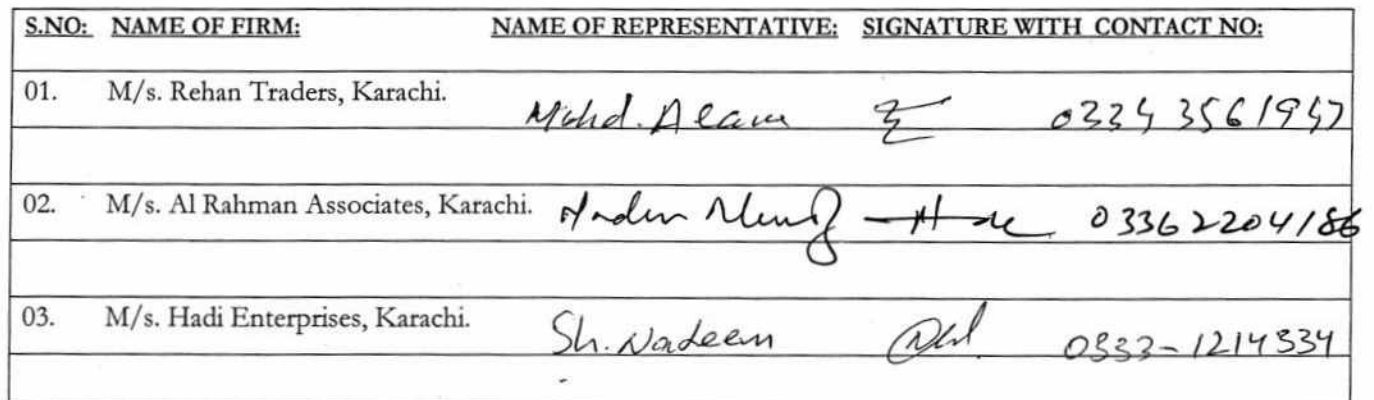 S.NO: NAME OF FIRM: NAME OF REPRESENTATIVE: SIGNATURE WITH CONTACT NO:
01. M/s. Rehan Traders, Karachi. Mohd. Alam
02. M/s. Al Rahman Associates, Karachi. 03362204186
03. M/s. Hadi Enterprises, Karachi. Sh. Nadeem 0333-1214334